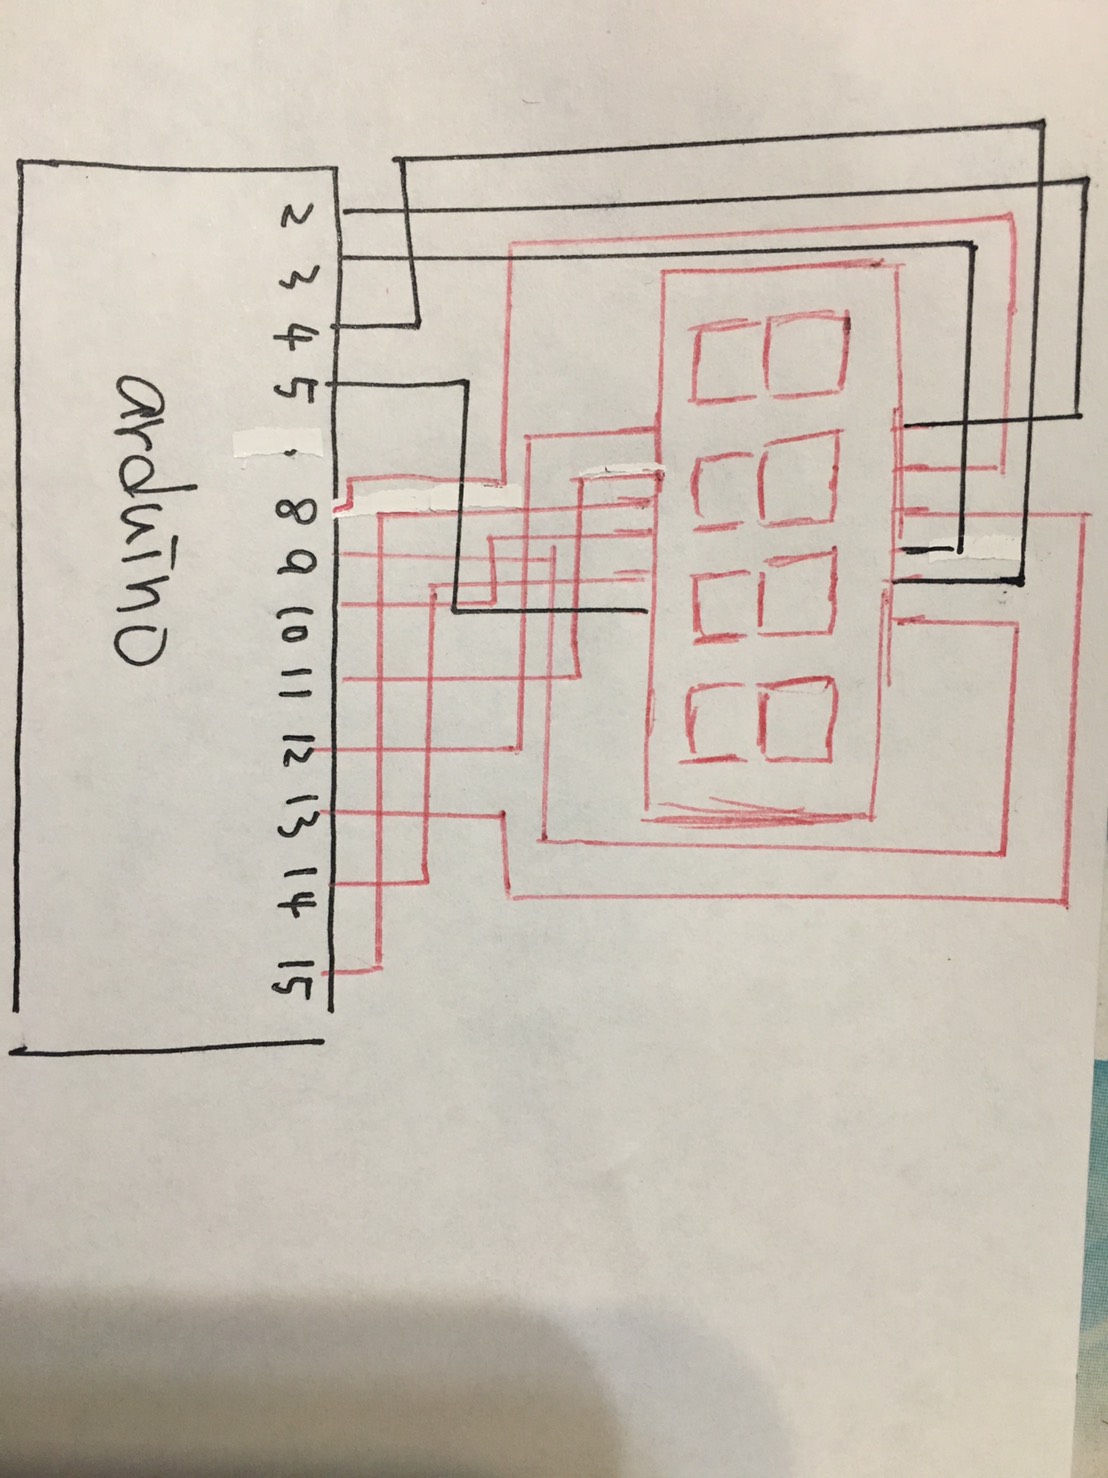 2 3 4 5 . 8 9 10 11 12 13 14 15
arduino